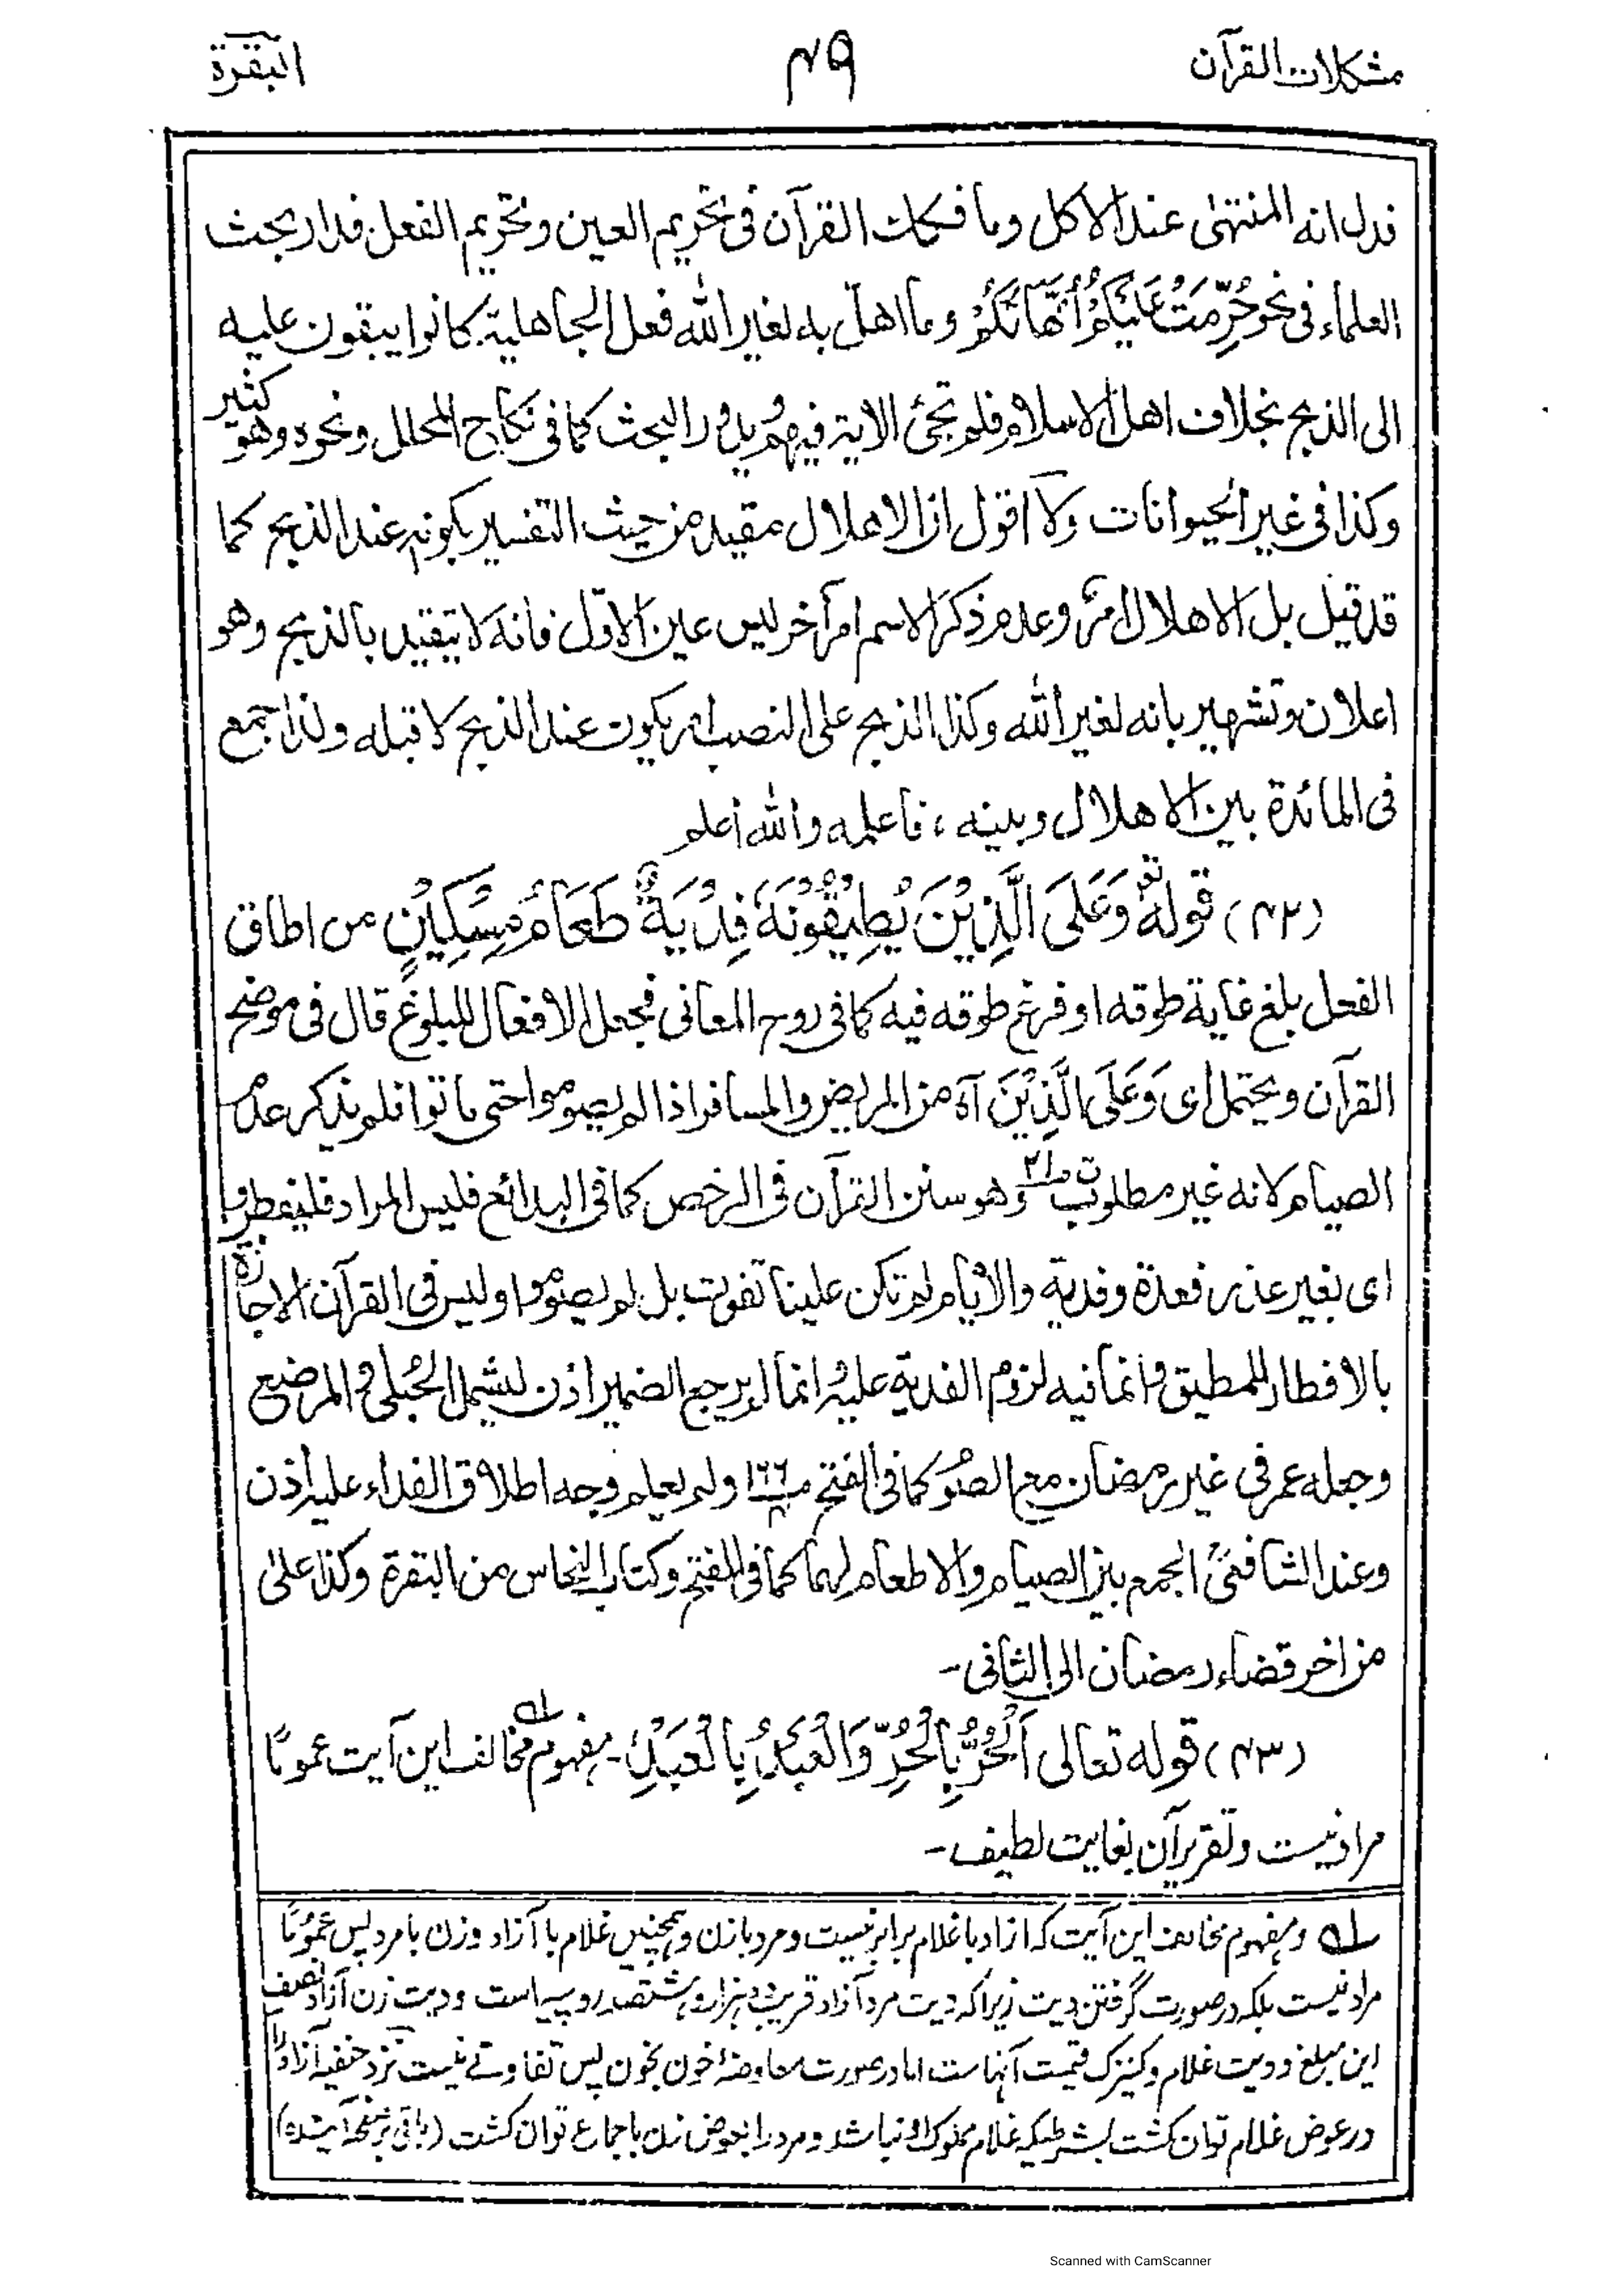 مشکلات القرآن
۴۹
البقرة
فدل انه المنتهیٰ عند الاکل وما فکک القرآن فی تحریم العین وتحریم الفعل فدار بحث
العلماء فی نحو حُرِّمَتْ عَلَیْکُمْ اُمَّهَاتُکُمْ وما اهل به لغیر الله فعل الجاهلیة کانوا یبقون علیه
الی الذبح بخلاف اهل الاسلام فلم تجئ الایة فیهم یدور البحث کما فی نکاح المحلل ونحوه وهو کثیر
وکذا فی غیر الحیوانات ولا اقول ان الاهلال مقید من حیث التفسیر بکونه عند الذبح کما
قد قیل بل الاهلال امر وعدم ذکر الاسم امر آخر لیس عین الاول فانه لا یتقید بالذبح وهو
اعلان وتشهیر بانه لغیر الله وکذا الذبح علی النصب امر یکون عند الذبح لا قبله ولذا جمع
فی المائدة بین الاهلال وبینه ، فاعلمه والله اعلم
(۴۲) قوله تعـ وَعَلَی الَّذِیْنَ یُطِیْقُوْنَهٗ فِدْیَةٌ طَعَامُ مِسْکِیْنٍ من اطاق
الفعل بلغ غایة طوقه او فرغ طوقه فیه کما فی روح المعانی فجعل الافعال للبلوغ قال فی موضح
القرآن ویحتمل ای وَعَلَی الَّذِیْنَ آه من المریض والمسافر اذا لم یصوموا حتی ماتوا فلم یذکر عدم
الصیام لانه غیر مطلوب وهو سنن القرآن فی الرخص کما فی البدائع فلیس المراد فلیفطروا
ای بغیر عذر فعدة وفدیة والایام لم تکن علینا تفوت بل لم یصوموا ولیس فی القرآن الاجازة
بالافطار للمطیق وانما فیه لزوم الفدیة علیه انما لم یرجع الضمیر اذن لیشمل الحبلی والمرضع
وجعله عمر فی غیر رمضان مع الصوم کما فی الفتح ولم یعلم وجه اطلاق الفداء علیه اذن
وعند الشافعیؒ الجمع بین الصیام والاطعام لهما کما فی الفتح وکتاب النحاس من البقرة وکذا علیٰ
من اخر قضاء رمضان الی الثانی۔
(۴۳) قوله تعالی اَلْحُرُّ بِالْحُرِّ وَالْعَبْدُ بِالْعَبْدِ۔ مفهوم مخالف این آیت عموماً
مراد نیست وتقریر آن بغایت لطیف۔
لہ ومفهوم مخالف این آیت که ازاد با غلام برابر نیست ومرد بازن وهمچنین غلام با آزاد وزن بامرد پس عموماً
مراد نیست بلکه در صورت گرفتن دیت زیرا که دیت مرد آزاد قریب دو هزار وهشتصد روپیه است ودیت زن آزاد نصف
این مبلغ ودیت غلام وکنیزک قیمت آنهاست اما در صورت معاوضۂ خون بخون پس تفاوتے نیست نزد حنفیه آزاد را
در عوض غلام توان کشت بشرطیکه غلام مملوک او نباشد ومرد را بعوض زن باجماع توان کشت (باقی بر صفحه آینده)
Scanned with CamScanner